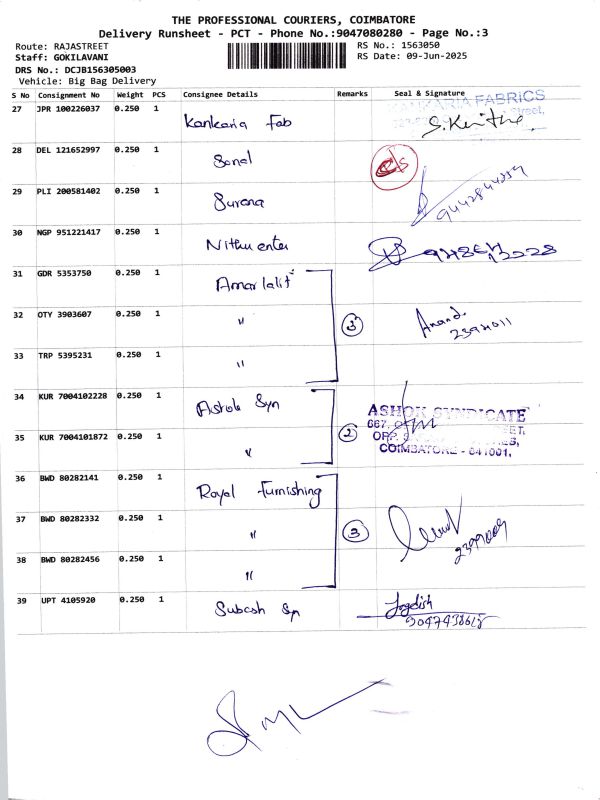 THE PROFESSIONAL COURIERS, COIMBATORE
Delivery Runsheet - PCT - Phone No.:9047080280 - Page No.:3
Route: RAJASTREET
RS No.: 1563050
Staff: GOKILAVANI
RS Date: 09-Jun-2025
DRS No.: DCJB156305003
Vehicle: Big Bag Delivery
S No Consignment No Weight PCS Consignee Details Remarks Seal & Signature
27 JPR 100226037 0.250 1 Kankaria Fab KANKARIA FABRICS
Street,
S. Kavitha
28 DEL 121652997 0.250 1 Sonal
29 PLI 200581402 0.250 1 Surana
30 NGP 951221417 0.250 1 Nithu enter
31 GDR 5353750 0.250 1 Amar lalit
32 OTY 3903607 0.250 1 〃 3 Anand
33 TRP 5395231 0.250 1 〃
34 KUR 7004102228 0.250 1 Ashok Syn ASHOK SYNDICATE
667,
35 KUR 7004101872 0.250 1 〃 2 OPP.
COIMBATORE - 641001.
36 BWD 80282141 0.250 1 Royal Furnishing
37 BWD 80282332 0.250 1 〃 3
38 BWD 80282456 0.250 1 〃
39 UPT 4105920 0.250 1 Subash Syn Jagdish